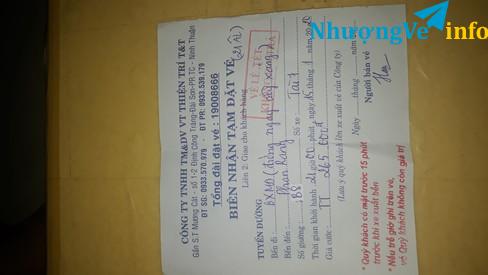 NhượngVé.info
CÔNG TY TNHH TM&DV VT THIÊN TRÍ T&T
Gần S.T Mương Cát - số 1-2 Định Công Tráng-Đài Sơn-PR.TC - Ninh Thuận
ĐT SG: 0933.570.979 - ĐT PR: 0933.539.179
Tổng đài đặt vé : 19008666
BIÊN NHẬN TẠM ĐẶT VÉ
Liên 2: Giao cho khách hàng
(21 ÂL)
VÉ LỄ, TẾT
TUYẾN ĐƯỜNG
Bến đi : BXMĐ (đứng ngay cây xăng)
Bến đến : Phan Rang
Số giường : B8 Số xe : Tài 7
Thời gian khởi hành 21 giờ 00 phút, ngày 15 tháng 1 năm 2020
Giá cước: TT 265 000đ
(Lưu ý quý khách lên xe xuất vé của Công ty)
Ngày tháng năm 20
Người bán vé
* Quý khách có mặt trước 15 phút
trước khi xe xuất bến
* Nếu trễ giờ ghi trên vé,
vé Quý khách không còn giá trị